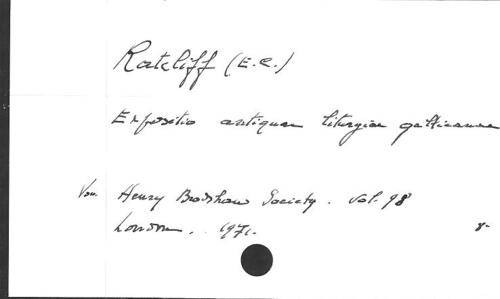 Ratcliff (E.C.)
Expositio antiquae liturgiae gallicanae
Henry Bradshaw Society. Vol. 98
London. 1971.
8-